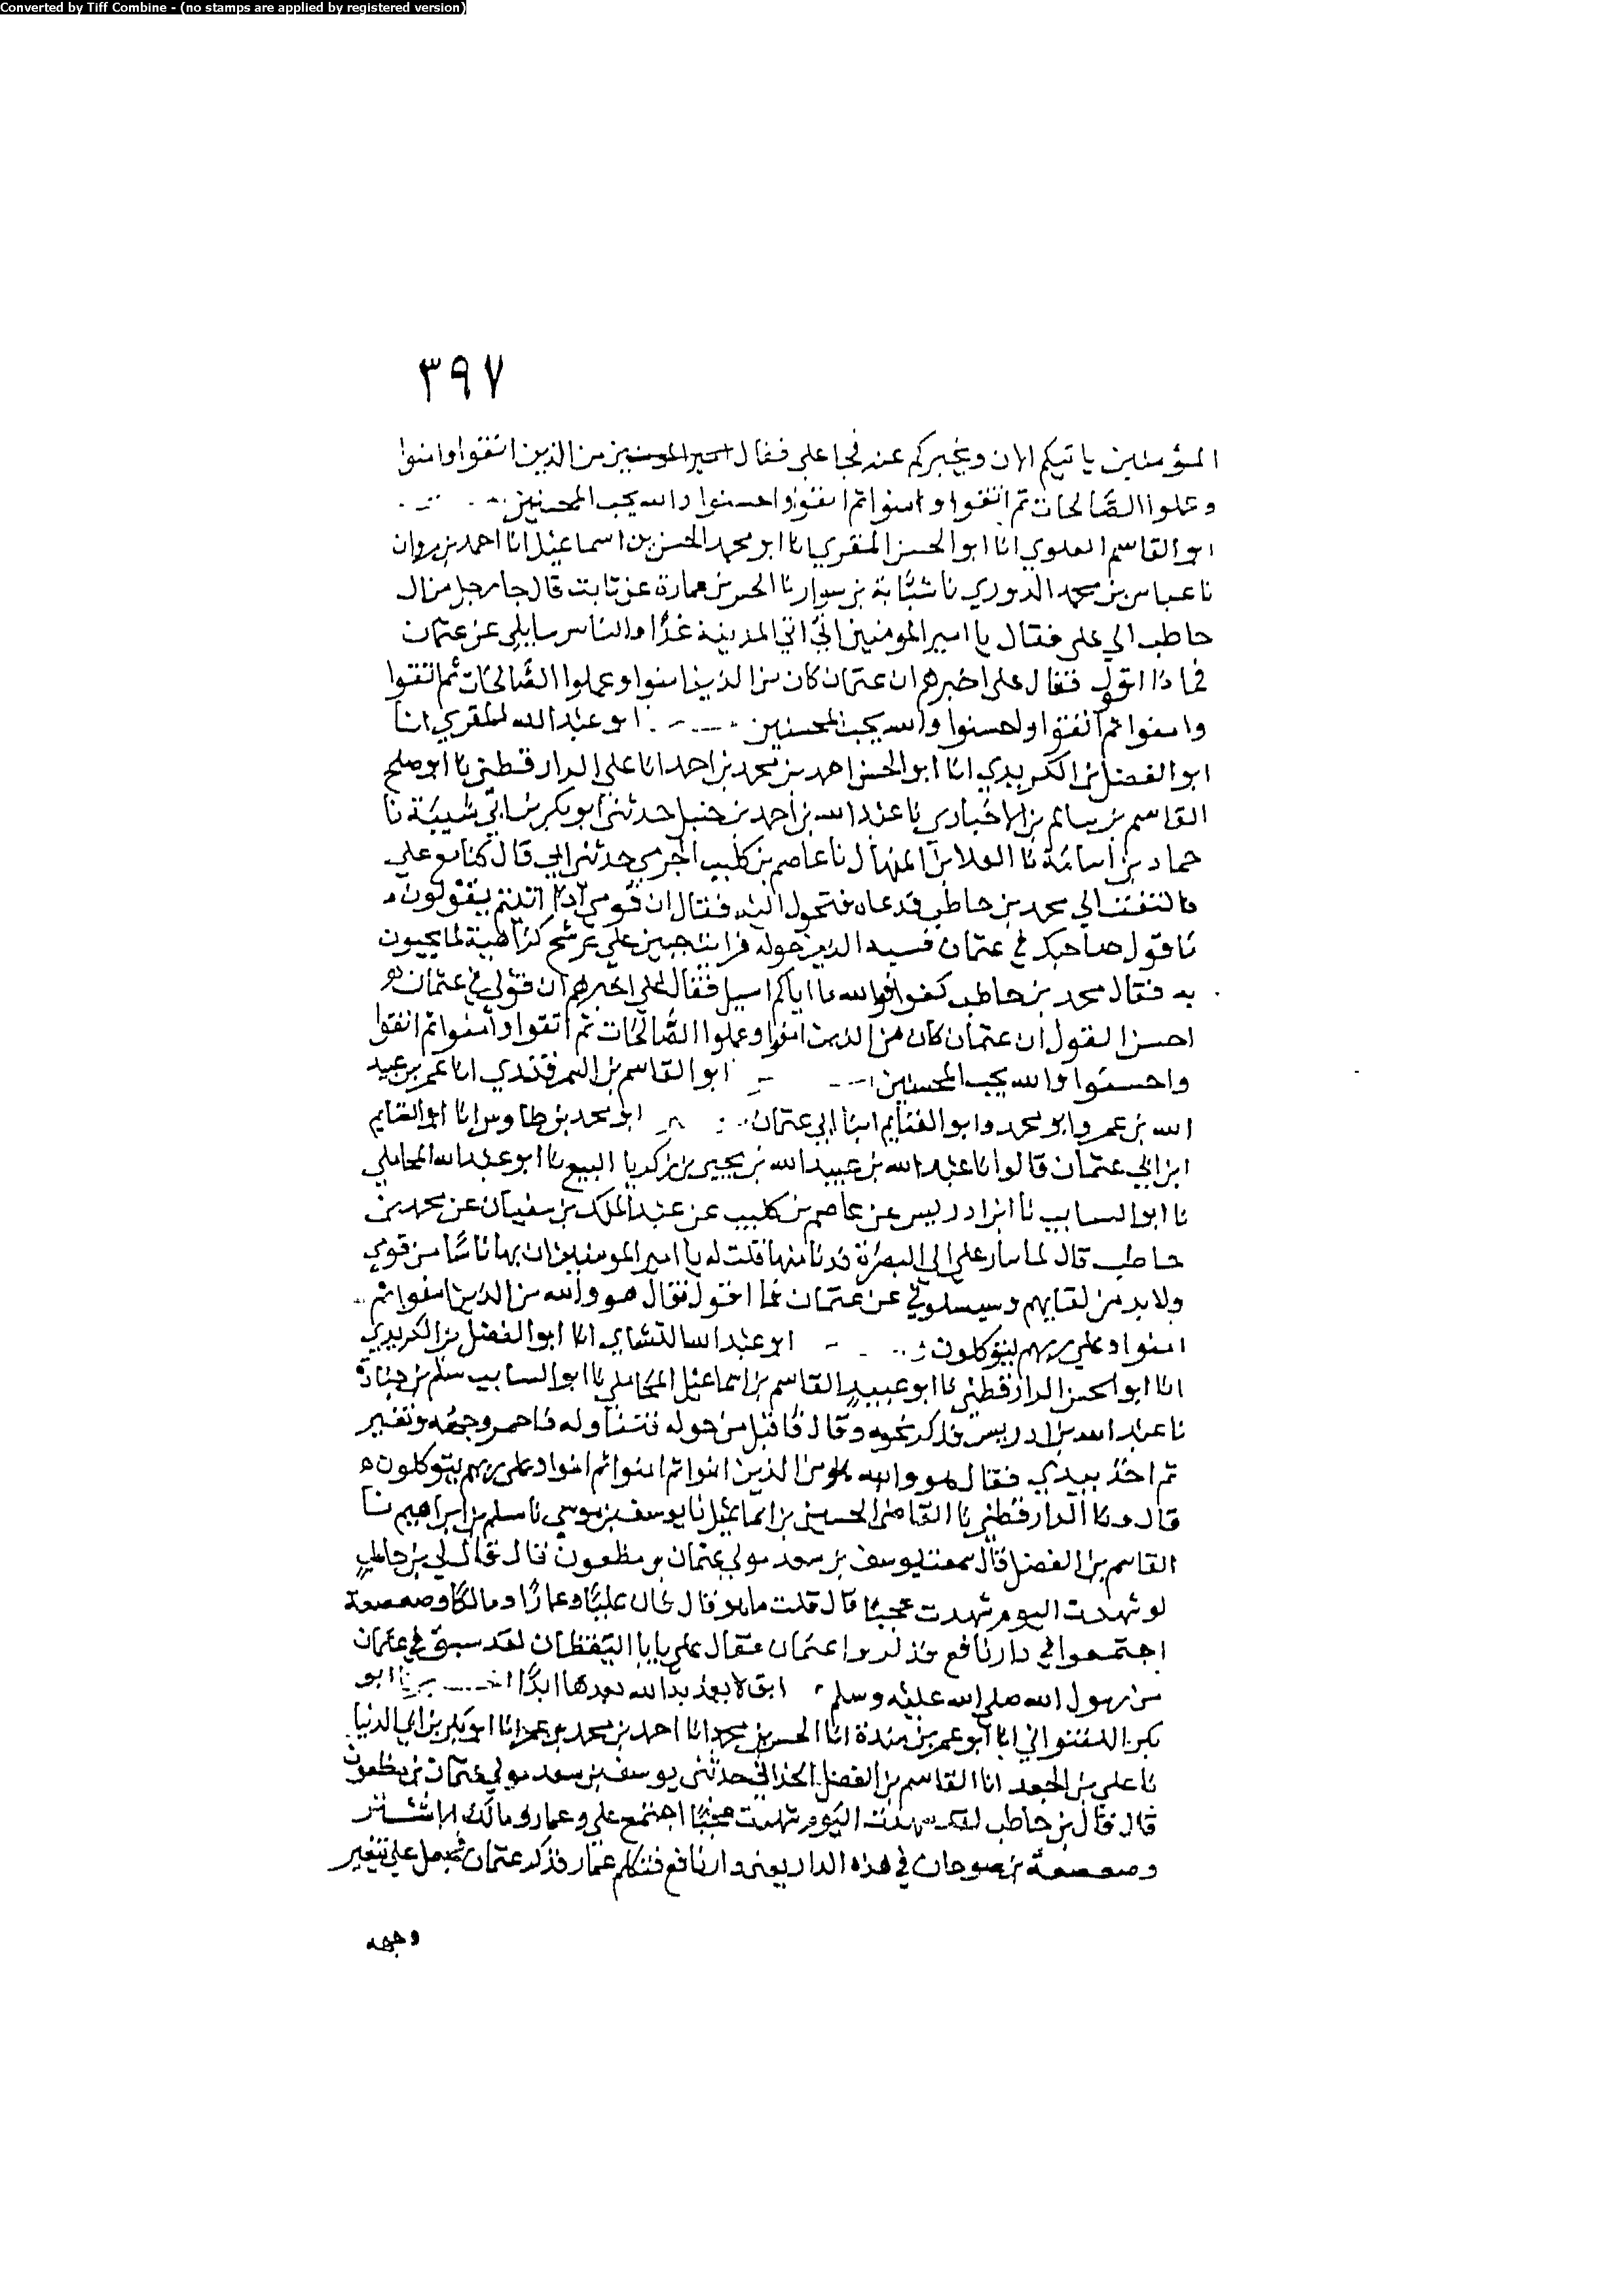 Converted by Tiff Combine - (no stamps are applied by registered version)
٣٩٧
المؤمنين ياتيكم الان ويخبركم عنه فجا علي فقال امير المومنين من الذين اتقوا وامنوا
وعملوا الصالحات ثم اتقوا وامنوا ثم اتقوا واحسنوا والله يحب المحسنين
ابو القاسم العلوي انا ابو الحسن المقري انا ابو محمد الحسن بن اسماعيل انا احمد بن مروان
نا عباس بن محمد الدوري نا شبابة بن سوار نا الحسن بن عمارة عن ثابت قال جا رجل من ال
حاطب الي علي فقال يا امير المومنين اني اتي المدينة غدا والناس سايلي عن عثمان
فماذا اقول فقال علي اخبرهم ان عثمان كان من الذين امنوا وعملوا الصالحات ثم اتقوا
وامنوا ثم اتقوا واحسنوا والله يحب المحسنين ابو عبد الله المقري انا
ابو الفضل بن الكريدي انا ابو الحسن احمد بن محمد بن احمد انا علي الدارقطني نا ابو صلح
القاسم بن سالم بن الاخباري نا عبد الله بن احمد بن حنبل حدثني ابو بكر بن ابي شيبة نا
حماد بن اسامة نا العلا بن المنهال نا عاصم بن كليب الجرمي حدثني ابي قال كنا مع علي
فالتفت الي محمد بن حاطب فدعاه فتحول اليه فقال ان قومي اذا اتيتهم يقولون
ما قول صاحبك في عثمان فسبه الذين حوله فرايت جبين علي يرشح كراهية لما يجيون
به فقال محمد بن حاطب كفوا فوالله ما اياكم اسيل فقال علي اخبرهم ان قولي في عثمان
احسن القول ان عثمان كان من الذين امنوا وعملوا الصالحات ثم اتقوا وامنوا ثم اتقوا
واحسنوا والله يحب المحسنين ابو القاسم بن السمرقندي انا عمر بن عبيد
الله بن عمر وابو محمد وابو الغنايم ابنا ابي عثمان ابو محمد بن طاوس انا ابو الغنايم
ابن ابي عثمان قالوا انا عبد الله بن عبيد الله بن يحيي بن زكريا البيع نا ابو عبد الله المحاملي
نا ابو السايب نا ابن ادريس عن عاصم بن كليب عن عبد الملك بن سفيان عن محمد بن
حاطب قال لما سار علي الي البصرة فدنا منها قلت له يا امير المومنين ان بها ناسا من قومي
ولا بد من لقايهم وسيسلوني عن عثمان فما اقول فقال هو والله من الذين امنوا ثم
امنوا وعلي ربهم يتوكلون ابو عبد الله النشابي انا ابو الفضل بن الكريدي
انا ابو الحسن الدارقطني نا ابو عبيد القاسم بن اسماعيل المحاملي نا ابو السايب سلم بن جنادة
نا عبد الله بن ادريس فذكر نحوه وقال فاقبل من حوله فتناوله فاحمر وجهه وتغير
ثم اخذ بيدي فقال هو والله من الذين امنوا ثم امنوا ثم امنوا وعلي ربهم يتوكلون
قال ونا الدارقطني نا القاضي الحسين بن اسماعيل نا يوسف بن موسي نا مسلم بن ابراهيم نا
القاسم بن الفضل قال سمعت يوسف بن سعد مولي عثمان بن مظعون قال قال لي بن حاطب
لو شهدت اليوم شهدت عجبا قال قلت ما هو قال فان عليا وعمارا ومالكا وصعصعة
اجتمعوا في دار نافع فذكروا عثمان فقال علي يابا اليقظان لقد سبق في عثمان
من رسول الله صلي الله عليه وسلم بعدها ابدا ابو
بكر اللفتواني انا ابو عمر بن مندة انا الحسن بن محمد انا احمد بن محمد بن عمر انا ابو بكر بن ابي الدنيا
نا علي بن الجعد انا القاسم بن الفضل الحداني حدثني يوسف بن سعد مولي عثمان بن مظعون
قال قال بن حاطب لقد شهدت اليوم شهدت عجبا اجتمع علي وعمار ومالك الاشتر
وصعصعة بن صوحان في هذه الدار يعني دار نافع فتكلم عمار فذكر عثمان فجعل علي تتغير
وجهه